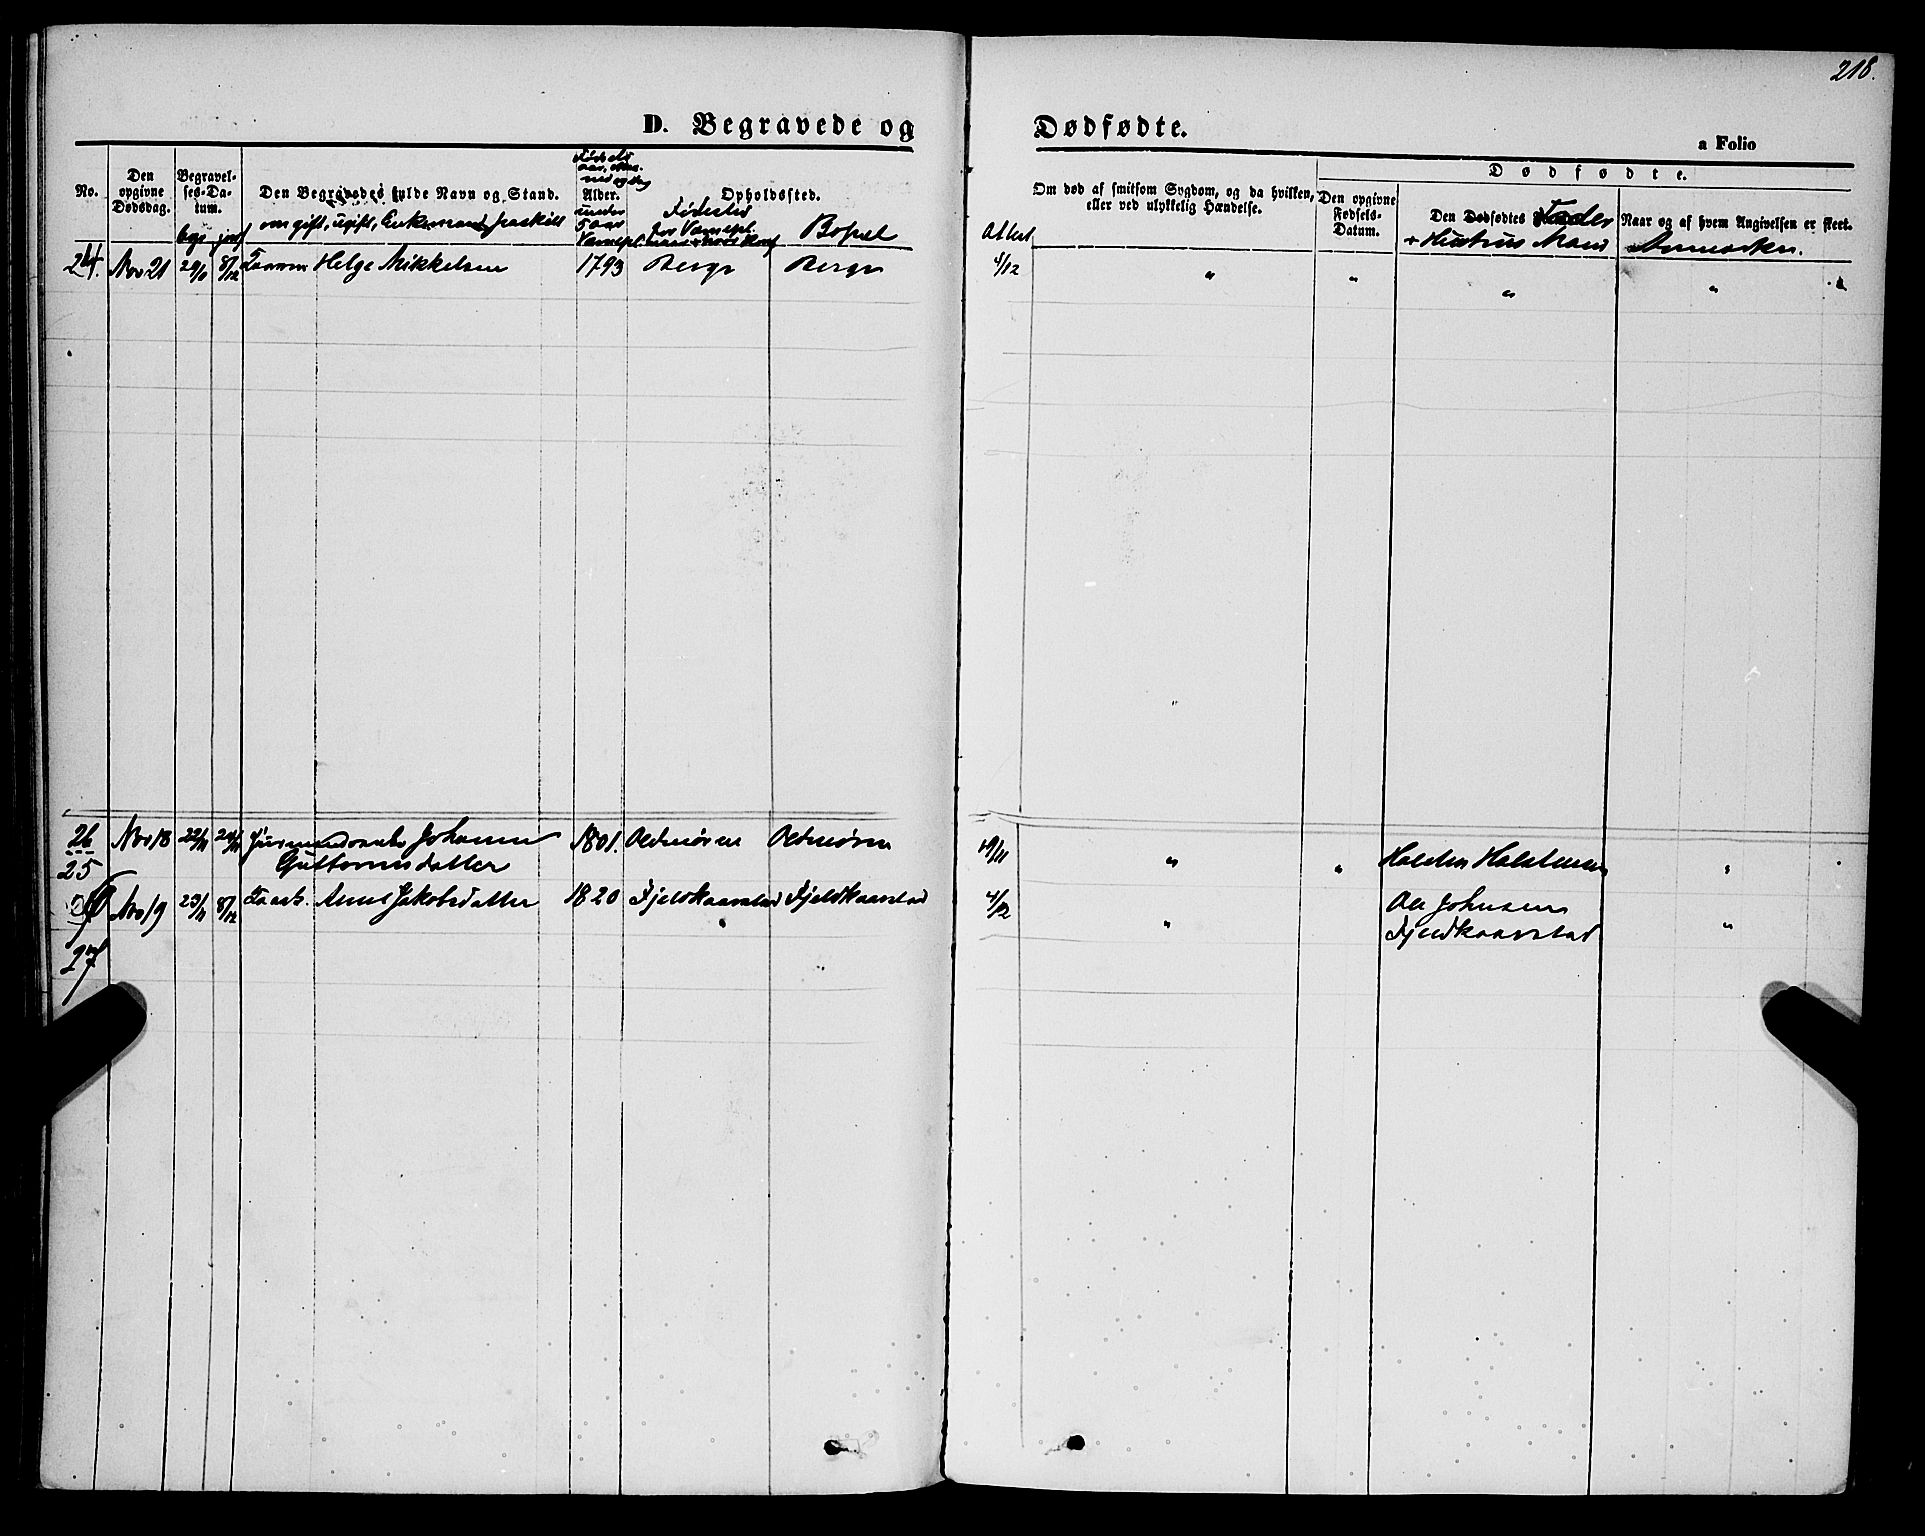 218.
D. Begravede og Dødfødte.
a Folio
No.
Den opgivne Dødsdag.
Begravelses-Datum.
Den Begravedes fulde Navn og Stand.
om gift, ugift, Enkemand fraskilt
Fødsels
Alder.
under
5 aar
Opholdssted.
Fødested
Bopæl
Attest
Om død af smitsom Sygdom, og da hvilken, eller ved ulykkelig Hændelse.
Dødfødte.
Den opgivne Fødsels-Datum.
Den Dødfødtes Fader
+ Hustrus Mand
Naar og af hvem Angivelsen er skeet.
Anmærkn.
24. Nov 21 8/12 Helge Mikkelsen 1793 Berge Berge 4/12 " " " "
26 Nov 18 22/11 24/11 Johanne 1801. 19/11 " " Halsten Halstensen "
25 Guttormsdatter
Nov 19 23/11 8/12 Anne Jakobsdatter 1820 Fjeldkaarstad Fjeldkaarstad 4/12 " Ole Johnsen "
Fjeldkaarstad
27